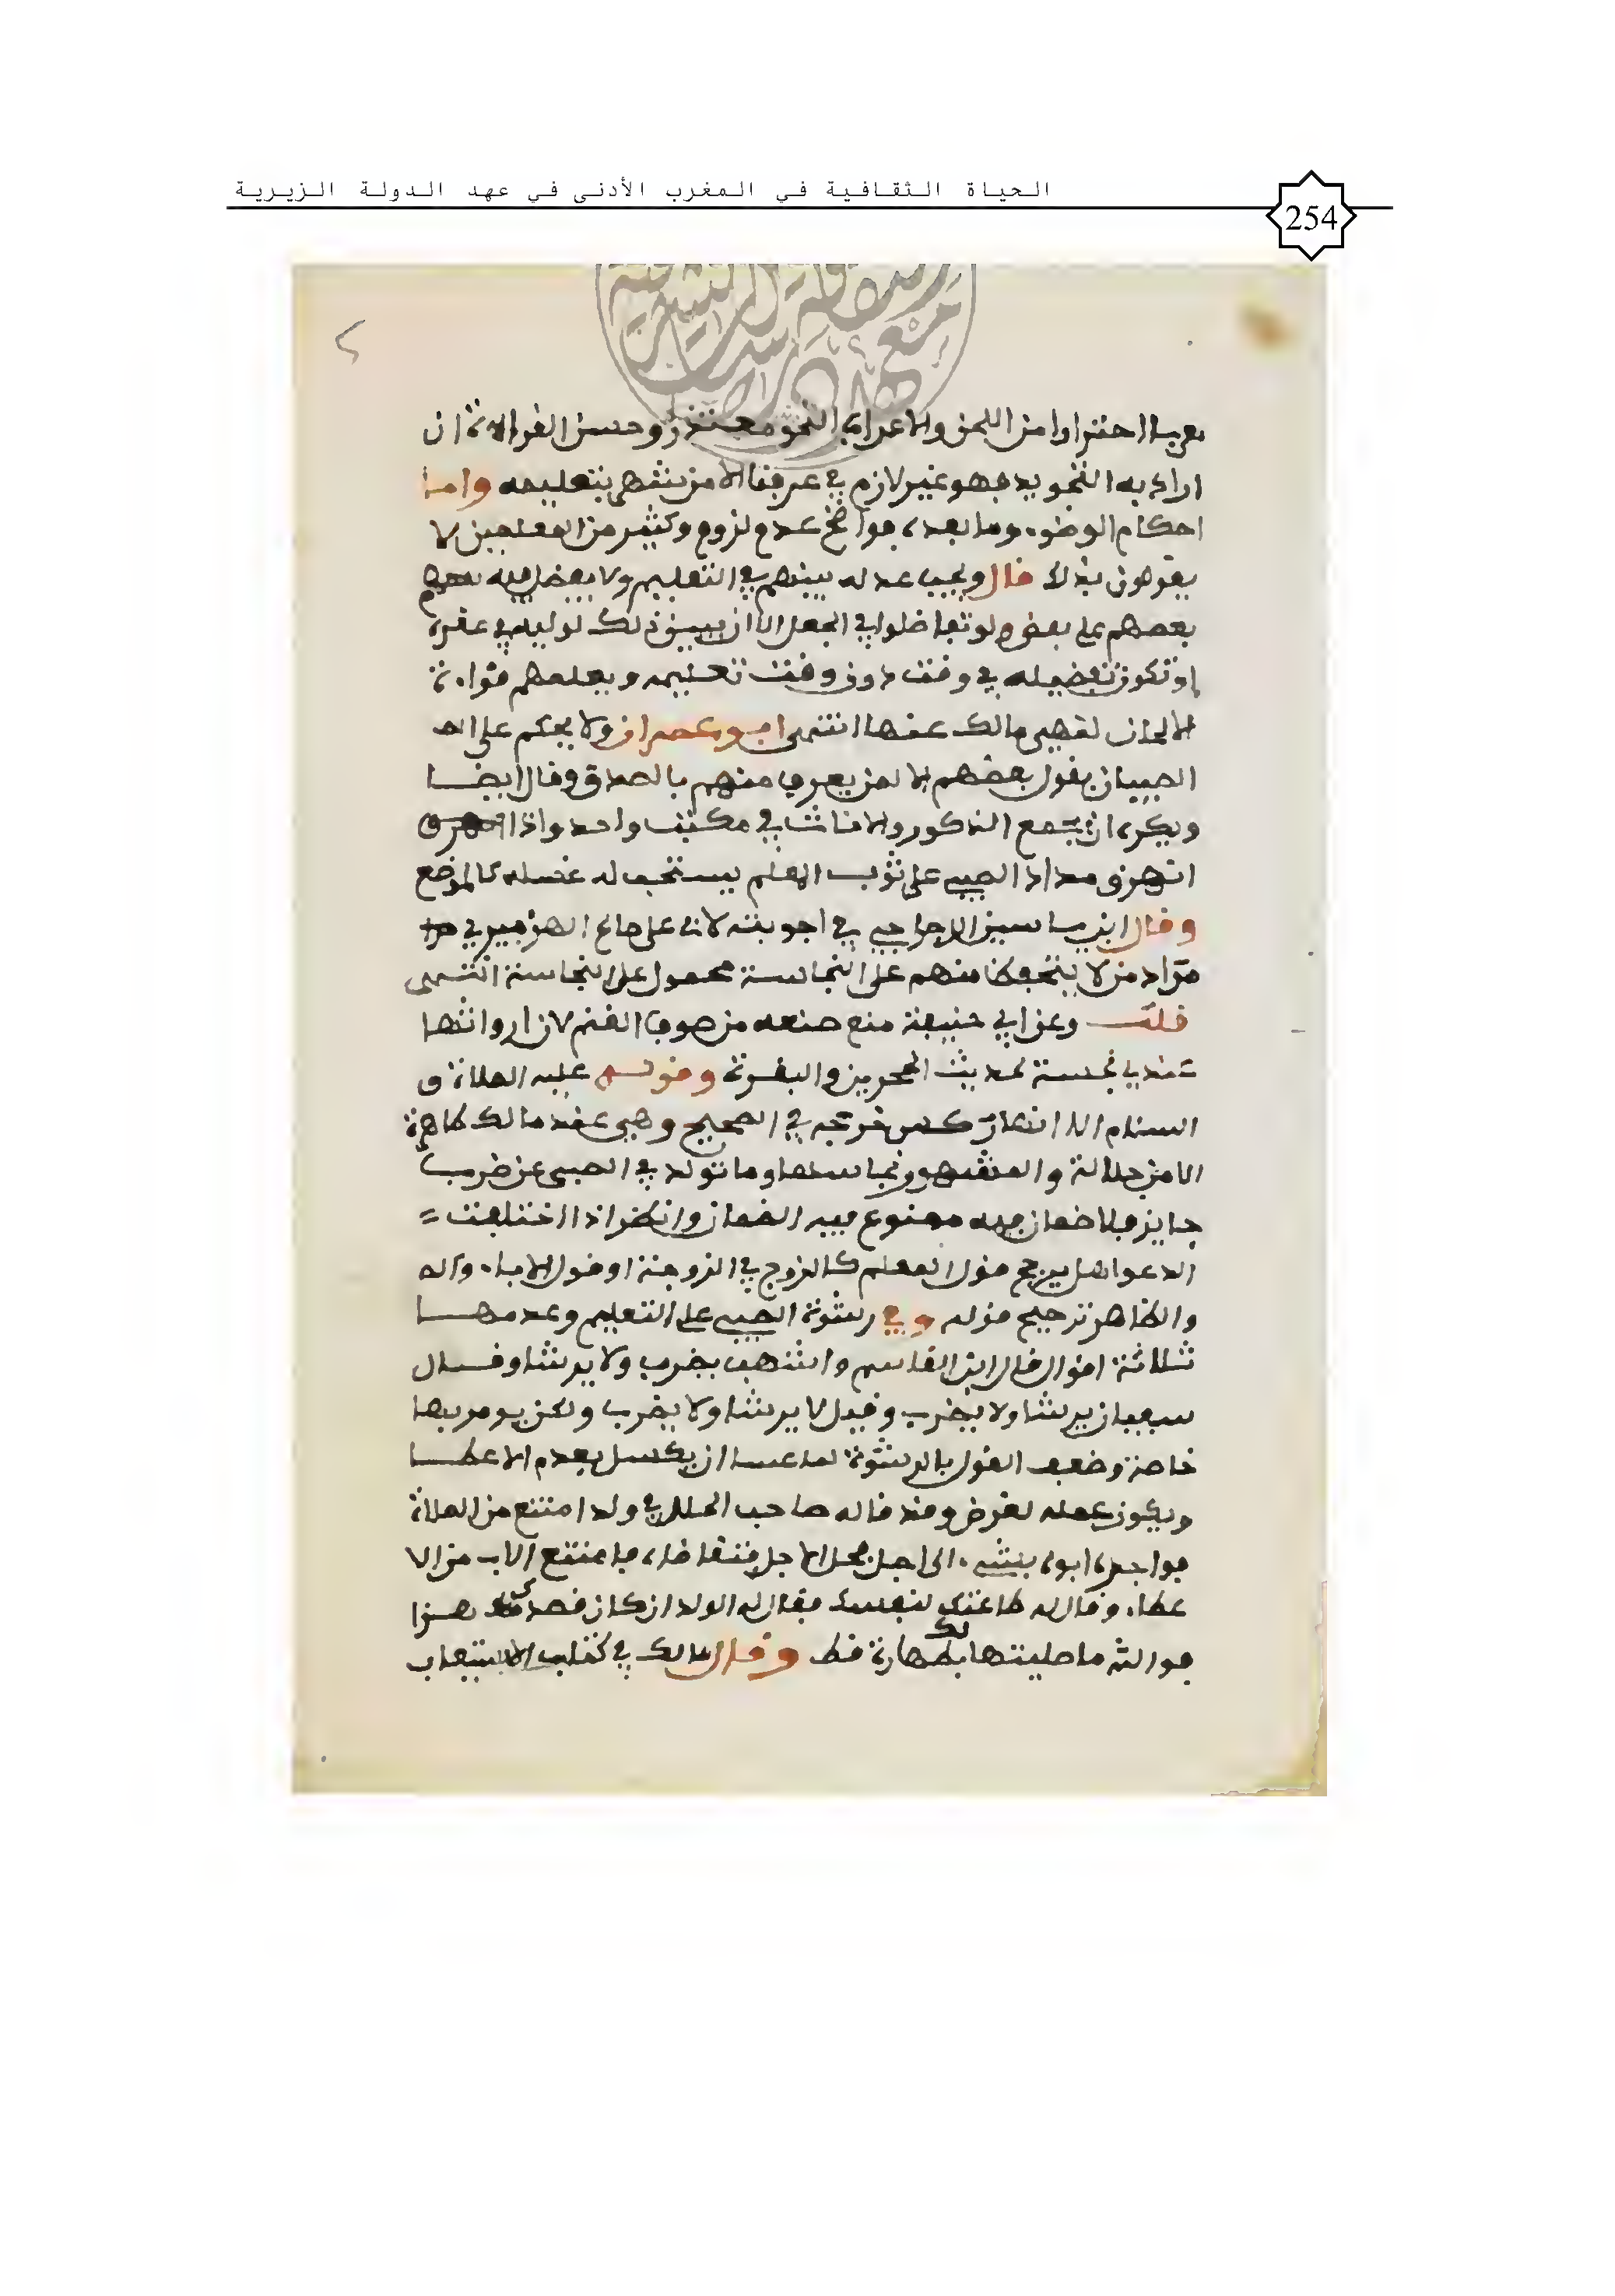 الحياة الثقافية في المغرب الأدنى في عهد الدولة الزيرية
254
احترازا من اللحن والاعراب النحو متعذر وحسن القراءة ان
اراد به التجويد فهو غير لازم في عرفنا الا من شهر بتعليمه واما
احكام الوضوء وما بعده فواضح عدم لزوم وكثير من المعلمين لا
يقومون بذلك قال ويجب عدله بينهم في التعليم ولا يفضل فيه
بعضهم على بعض ولو تفاضلوا في الجعل الا ان يبين ذلك لوليه في عقده
او تكون تفضيله في وقت دون وقت تعليمه ويعلمهم قراءة
الالحان لنهي مالك عنها انتهى ابو عمران ولا يحكم على
الصبيان بقول بعضهم الا لمن يعرف منهم بالصدق وقال ايضا
ويكره ان يجمع الذكور والاناث في مكتب واحد واذا
انهرق مداد الصبي على ثوب المعلم يستحب له غسله كالمرضع
وقال ابن ياسين الاجراجي في اجوبته لابي علي صالح الهزميري
مداد من لا يتحفظ منهم على النجاسة محمول على النجاسة انتهى
قلت وعن ابي حنيفة منع صنعه من صوف الغنم لان ارواثها
عنده نجسة لحديث الحجرين والبعرة وقوله عليه الصلاة و
السلام انها ركس خرجه في الصحيح وهي عند مالك طاهرة
الا من جلالة والمشهور نجاستها وما تولد في الصبي عن ضرب
جايز فلا ضمان فيه ممنوع فيه الضمان وانظر اذا اختلفت =
الدعوا هل يرجح قول المعلم كالزوج في الزوجة او قول الاباء واله
والظاهر ترجيح قوله وفي رشوة الصبي على التعليم وعدمها
ثلاثة اقوال قال ابن القاسم واشهب يضرب ولا يرشا وقال
سفيان يرشا ولا يضرب وقيل لا يرشا ولا يضرب ولكن يومر بها
خاصة وضعف القول بالرشوة لما عسا ان يكسل بعدم الاعطا
ويكون عمله لغرض وقد قاله صاحب الحلل في ولد امتنع من الصلاة
فواجره ابوه بشيء الى اجل فحل الاجل فتقاضاه فامتنع الاب من الا
عطاء وقال له طاعتك لنفسك فقال له الولد ان كان قصدك هذا
فوالله ما صليتها لك بطهارة قط وقال مالك في كتاب الاستيعاب